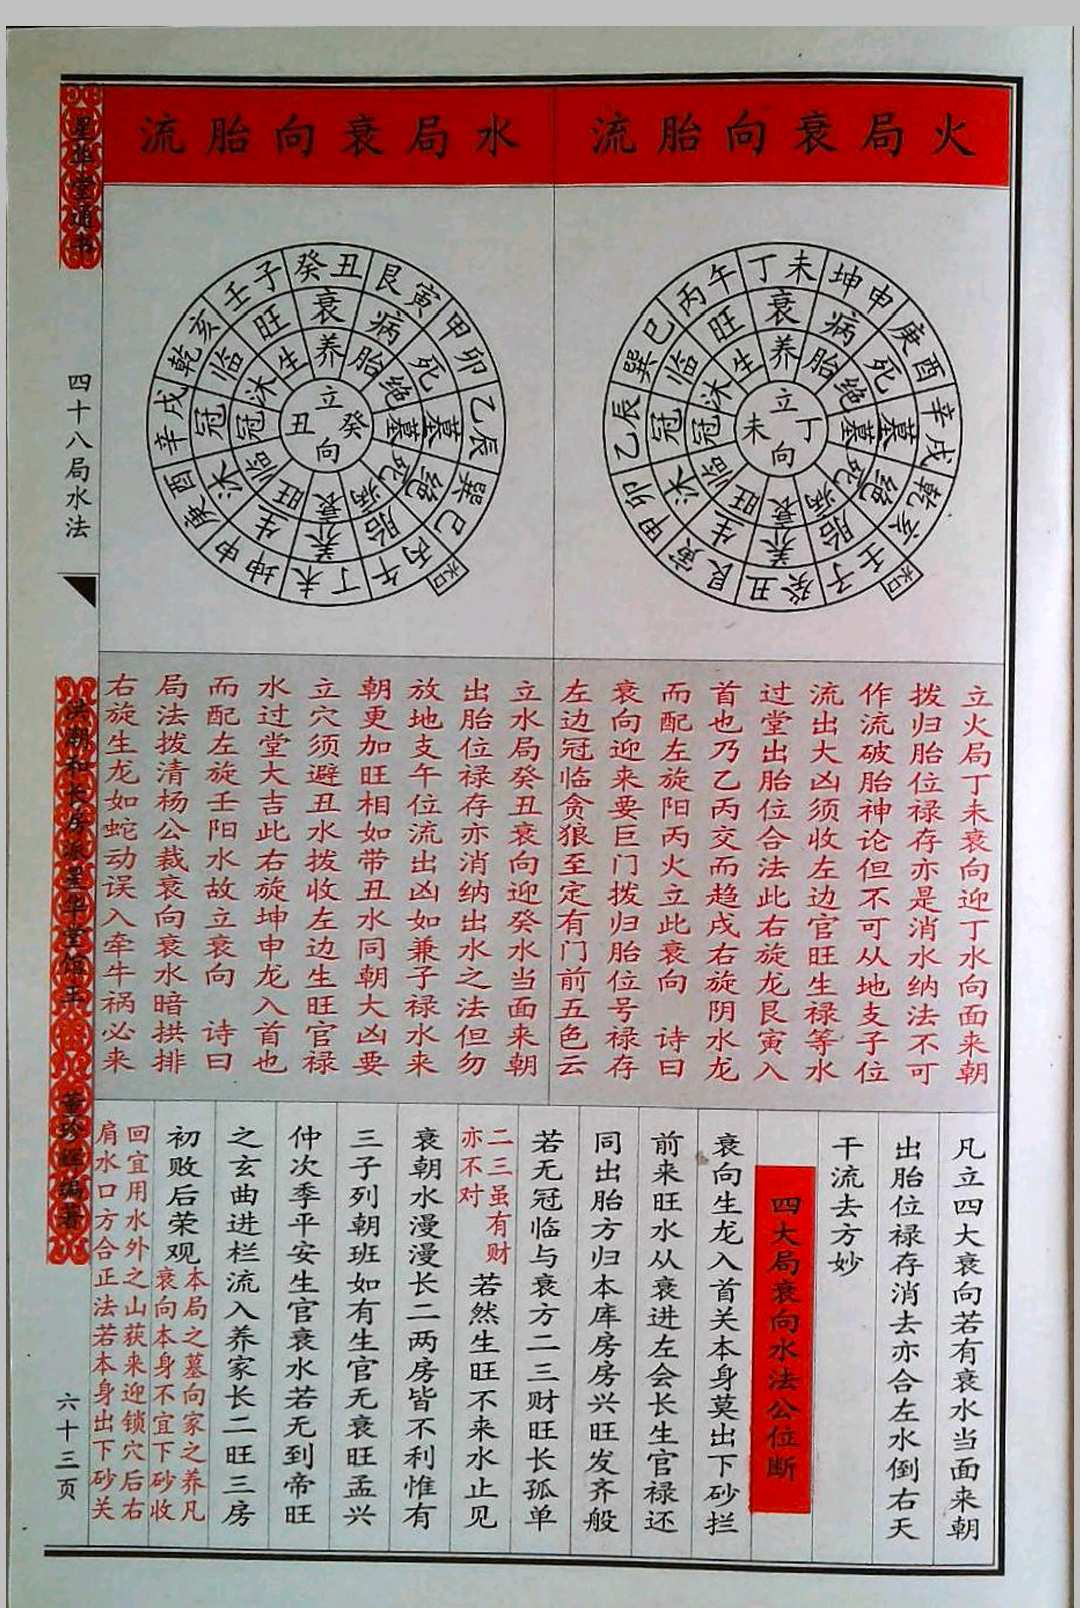 火局衰向胎流
水局衰向胎流
丁未
坤申
庚酉
辛戌
乾亥
壬子
癸丑
艮寅
甲卯
乙辰
巽巳
丙午
衰
病
死
墓
绝
胎
养
生
沐
冠
临
旺
养
胎
绝
墓
死
病
衰
旺
临
冠
沐
生
立
丁
向
未
癸丑
艮寅
甲卯
乙辰
巽巳
丙午
丁未
坤申
庚酉
辛戌
乾亥
壬子
衰
病
死
墓
绝
胎
养
生
沐
冠
临
旺
养
胎
绝
墓
死
病
衰
旺
临
冠
沐
生
立
癸
向
丑
立火局丁未衰向迎丁水向面来朝
拨归胎位禄存亦是消水纳法不可
作流破胎神论但不可从地支子位
流出大凶须收左边官旺生禄等水
过堂出胎位合法此右旋龙艮寅入
首也乃乙丙交而趋戌右旋阴水龙
而配左旋阳丙火立此衰向 诗曰
衰向迎来要巨门拨归胎位号禄存
左边冠临贪狼至定有门前五色云
立水局癸丑衰向迎癸水当面来朝
出胎位禄存亦消纳出水之法但勿
放地支午位流出凶如兼子禄水来
朝更加旺相如带丑水同朝大凶要
立穴须避丑水拨收左边生旺官禄
水过堂大吉此右旋坤申龙入首也
而配左旋壬阳水故立衰向 诗曰
局法拨清杨公裁衰向衰水暗拱排
右旋生龙如蛇动误入牵牛祸必来
凡立四大衰向若有衰水当面来朝
出胎位禄存消去亦合左水倒右天
干流去方妙
四大局衰向水法公位断
衰向生龙入首关本身莫出下砂拦
前来旺水从衰进左会长生官禄还
同出胎方归本库房房兴旺发齐般
若无冠临与衰方二三财旺长孤单
二三虽有财
亦不对
若然生旺不来水止见
衰朝水漫漫长二两房皆不利惟有
三子列朝班如有生官无衰旺孟兴
仲次季平安生官衰水若无到帝旺
之玄曲进栏流入养家长二旺三房
初败后荣观
本局之墓向家之养凡
衰向本身不宜下砂收
回宜用水外之山获来迎锁穴后右
肩水口方合正法若本身出下砂关
星华堂通书
四十八局水法
洪潮和长房派星华堂馆主
六十三页